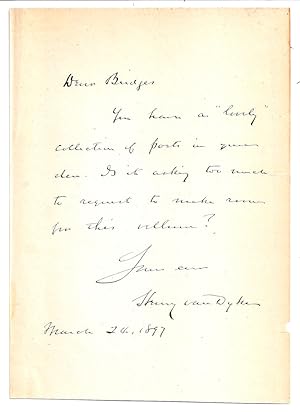 Dear Bridges
You have a "lively"
collection of poets in your
den. Is it asking too much
to request to make room
for this volume?
Yours ever
Henry van Dyke
March 24, 1897